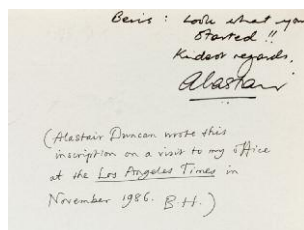 Bevis: Look what you
Started!!
Kindest regards,
Alastair
(Alastair Duncan wrote this
inscription on a visit to my office
at the Los Angeles Times in
November 1986. B.H.)